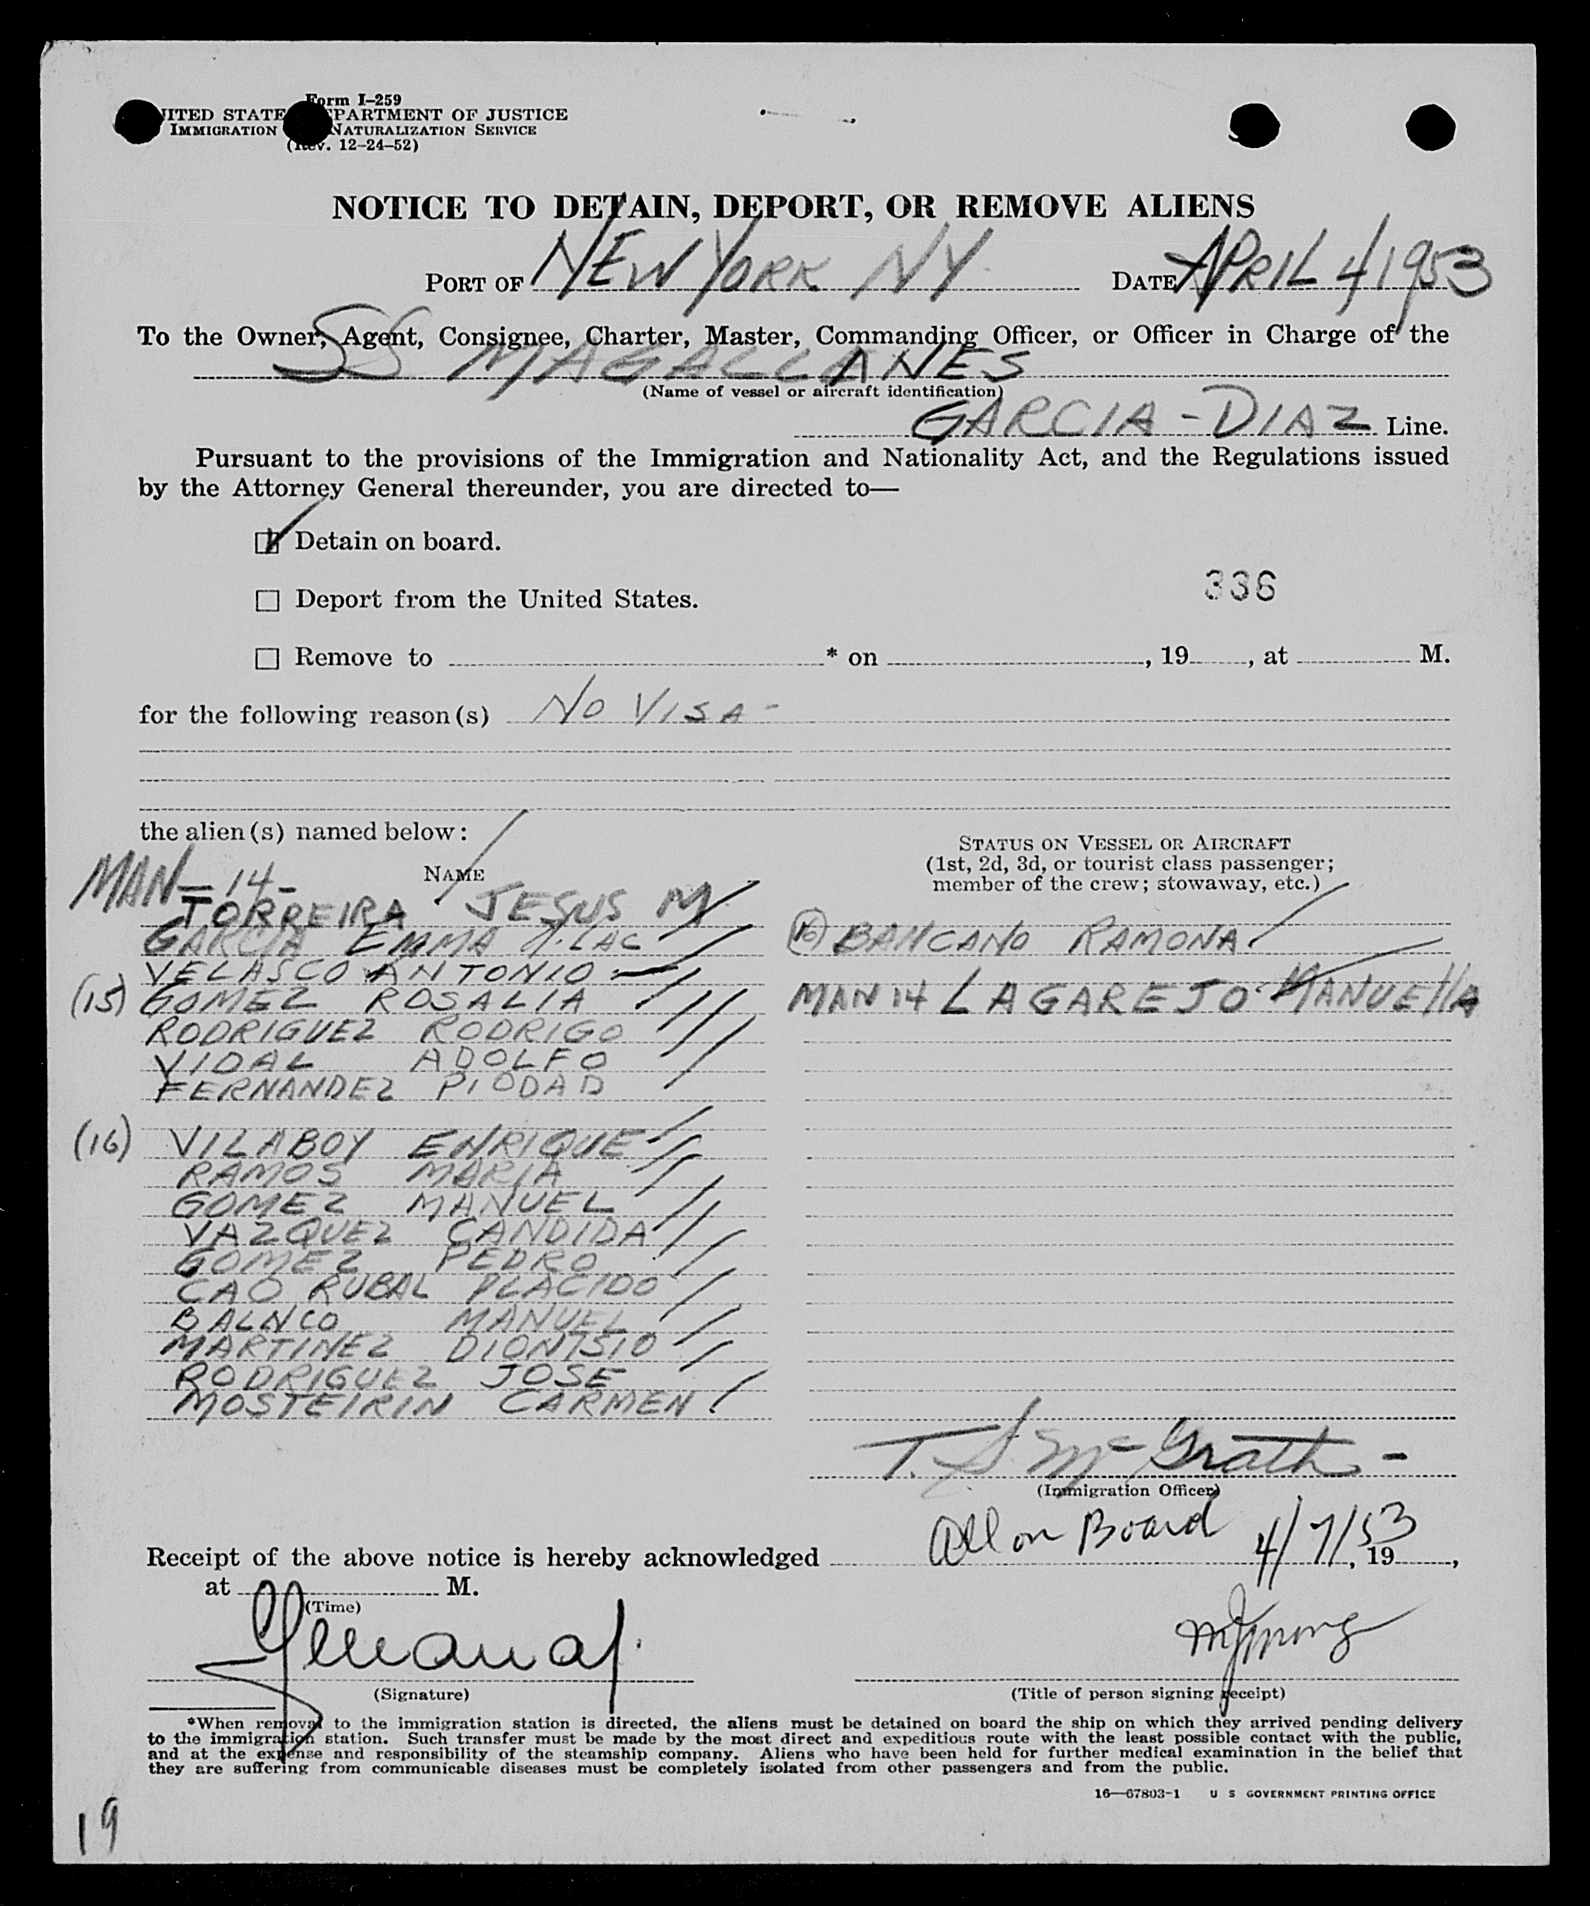 Form I-259
UNITED STATES DEPARTMENT OF JUSTICE
IMMIGRATION NATURALIZATION SERVICE
(Rev. 12-24-52)
NOTICE TO DETAIN, DEPORT, OR REMOVE ALIENS
PORT OF NEW YORK NY DATE APRIL 4/1953
To the Owner, Agent, Consignee, Charter, Master, Commanding Officer, or Officer in Charge of the
SS MAGALLANES
(Name of vessel or aircraft identification)
GARCIA-DIAZ Line.
Pursuant to the provisions of the Immigration and Nationality Act, and the Regulations issued
by the Attorney General thereunder, you are directed to—
Detain on board.
336
Deport from the United States.
Remove to * on , 19 , at M.
for the following reason(s) NO VISA-
the alien(s) named below:
NAME
STATUS ON VESSEL OR AIRCRAFT
(1st, 2d, 3d, or tourist class passenger;
member of the crew; stowaway, etc.)
MAN-14-
TORREIRA JESUS M
GARCIA EMMA
VELASCO ANTONIO
(15) GOMEZ ROSALIA
RODRIGUEZ RODRIGO
VIDAL ADOLFO
FERNANDEZ PIODAD
(16) VILABOY ENRIQUE
RAMOS MARIA
GOMEZ MANUEL
VAZQUEZ CANDIDA
GOMEZ PEDRO
CAO RUBAL PLACIDO
BALNCO MANUEL
MARTINEZ DIONISIO
RODRIGUEZ JOSE
MOSTEIRIN CARMEN
(16) BAHCANO RAMONA
MAN 14 LAGAREJO MANUELLA
T. S. McGrath -
(Immigration Officer)
All on Board 4/7/53
Receipt of the above notice is hereby acknowledged , 19 ,
at M.
(Time)
(Signature)
(Title of person signing receipt)
*When removal to the immigration station is directed, the aliens must be detained on board the ship on which they arrived pending delivery
to the immigration station. Such transfer must be made by the most direct and expeditious route with the least possible contact with the public,
and at the expense and responsibility of the steamship company. Aliens who have been held for further medical examination in the belief that
they are suffering from communicable diseases must be completely isolated from other passengers and from the public.
16—67803-1 U S GOVERNMENT PRINTING OFFICE
19